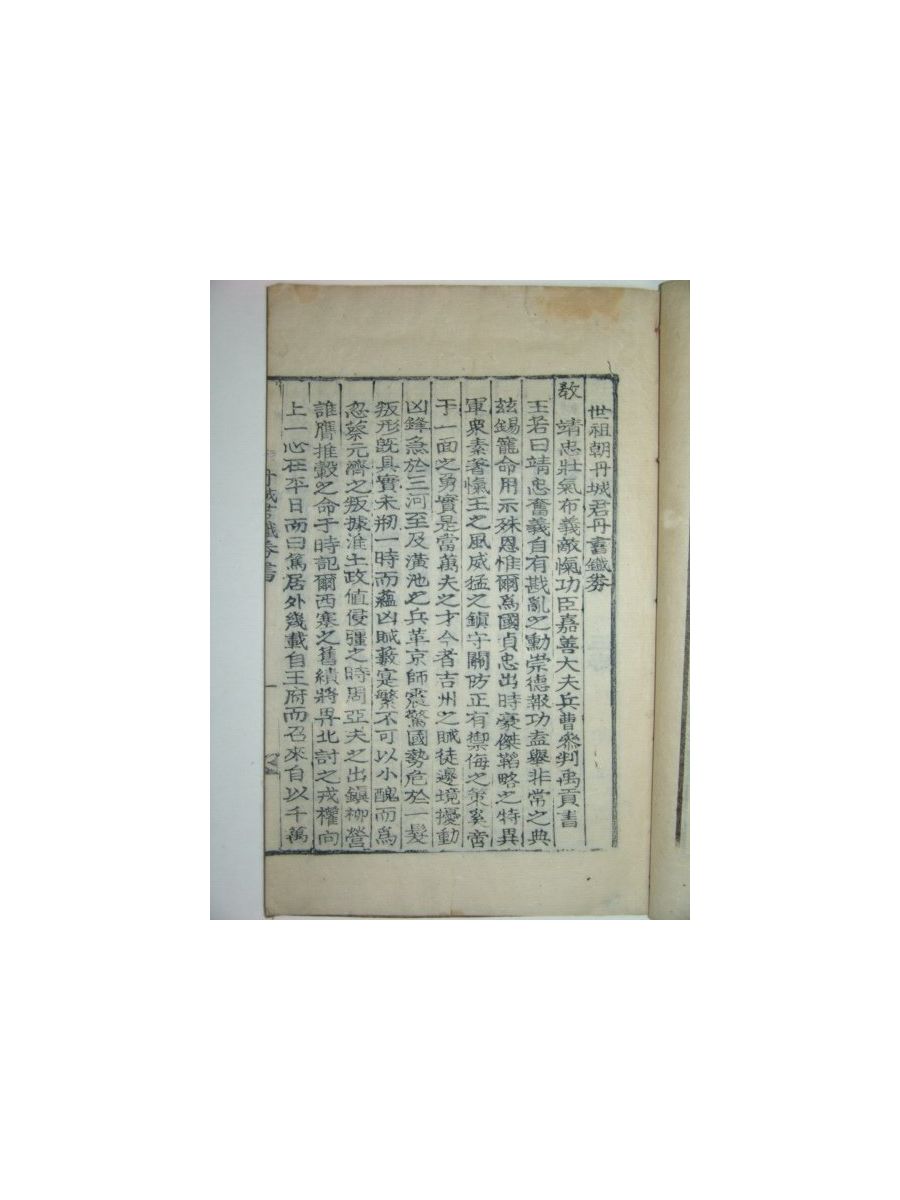 世祖朝丹城君丹書鐵券
教 靖忠壯氣布義敵愾功臣嘉善大夫兵曹叅判禹貢書
王若曰靖忠奮義自有戡亂之勳崇德報功盍擧非常之典
玆錫寵命用示殊恩惟爾爲國貞忠出時豪傑韜略之特異
軍衆素著愾王之風威猛之鎭守關防正有禦侮之策奚啻
于一面之勇實是當萬夫之才今者吉州之賊徒邊境擾動
凶鋒急於三河至及潢池之兵革京師震驚國勢危於一髮
叛形旣具實未刱一時而蘊凶賊藪寔繁不可以小醜而爲
忽蔡元濟之叛據淮土政値侵彊之時周亞夫之出鎭柳營
誰膺推轂之命于時記爾西塞之舊績將畀北討之戎權向
上一心在平日而曰篤居外幾載自王府而召來自以千萬
丹城君鐵券書 一